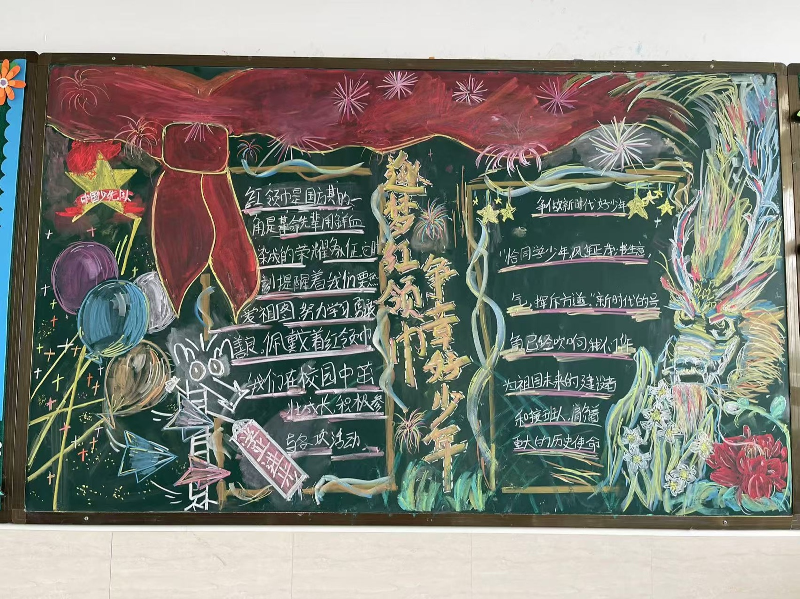 中国少年先队
红领巾是国旗的一
角是革命先辈用鲜血
染成的荣耀象征它时
刻提醒着我们要热
爱祖国努力学习勇敢
善良,佩戴着红领巾
我们在校园中茁
壮成长,积极参
与各项活动
逐梦红领巾
争章好少年
争做新时代好少年
"恰同学少年,风华正茂;书生意
气,挥斥方遒。"新时代的号
角已经吹响,我们作
为祖国未来的建设者
和接班人,肩负着
重大的历史使命